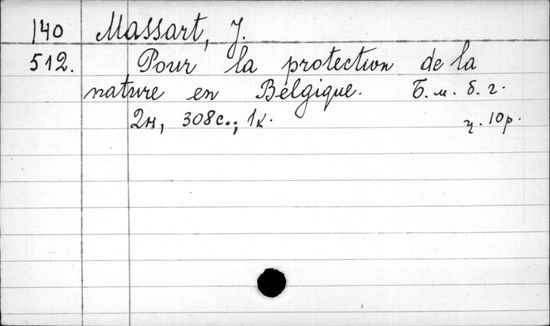 140 Massart, J.
512. Pour la protection de la
nature en Belgique. Б. м. б. г.
2н, 308с.; 1к. ц. 10р.